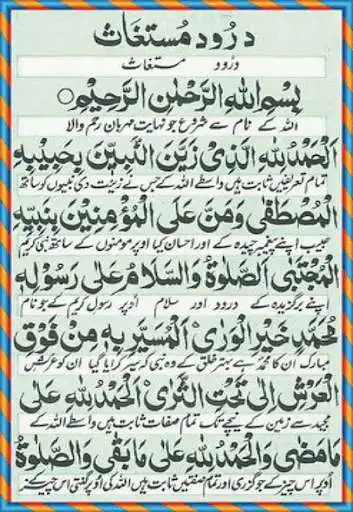 درود مستغاث
درود مستغاث
بِسْمِ اللهِ الرَّحْمٰنِ الرَّحِيْمِ
اللہ کے نام سے شروع جو نہایت مہربان رحم والا
اَلْحَمْدُ لِلّٰهِ الَّذِيْ زَيَّنَ النَّبِيّٖنَ بِحَبِيْبِهِ
تمام تعریفیں ثابت ہیں واسطے اللہ کے جس نے زینت دی نبیوں کو ساتھ
الْمُصْطَفٰى وَمَنَّ عَلَى الْمُؤْمِنِيْنَ بِنَبِيِّهِ
حبیب اپنے پیغمبر چیدہ کے اور احسان کیا اوپر مومنوں کے ساتھ نبی کریم
الْمُجْتَبٰى اَلصَّلٰوةُ وَالسَّلَامُ عَلٰى رَسُوْلِهٖ
اپنے برگزیدہ کے درود اور سلام اوپر رسول کریم کے جو نام
مُحَمَّدٍ خَيْرِ الْوَرٰى اَلْمُسَيَّرِ بِهٖ مِنْ فَوْقِ
مبارک ان کا محمدؐ ہے بہتر خلق کے وہ نبی کہ سیر کرایا گیا ان کو عرش
الْعَرْشِ اِلٰى تَحْتِ الثَّرٰى اَلْحَمْدُ لِلّٰهِ عَلٰى
مجید سے زمین کے نیچے تک تمام صفات ثابت ہیں واسطے اللہ کے
مَا مَضٰى وَالْحَمْدُ لِلّٰهِ عَلٰى مَا بَقٰى وَالصَّلٰوةُ
اوپر اس چیز کے جو گزری اور تمام صفتیں ثابت ہیں اللہ کی اوپر اس چیز کے